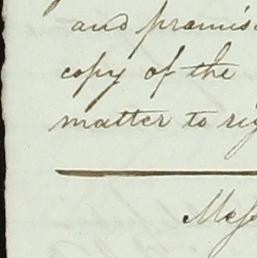 and promis
copy of the
matter to rig
Mess